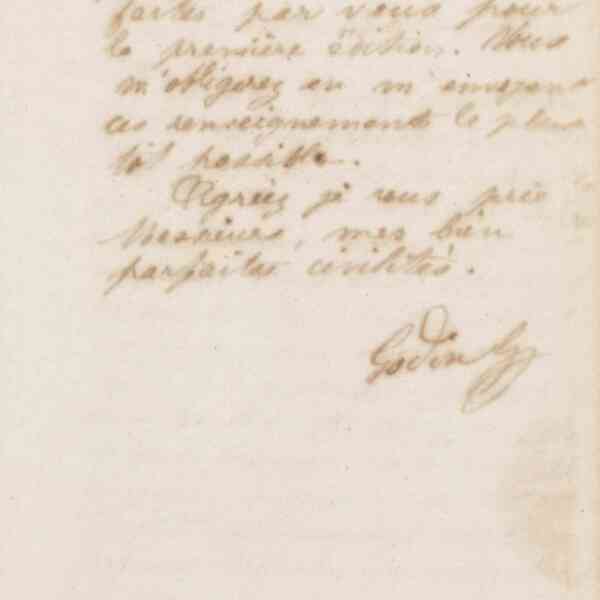 faites par vous pour
la première édition. Vous
m'obligerez en m'envoyant
ces renseignements le plus
tôt possible.
Agréez je vous prie
Messieurs, mes bien
parfaites civilités.
Godin